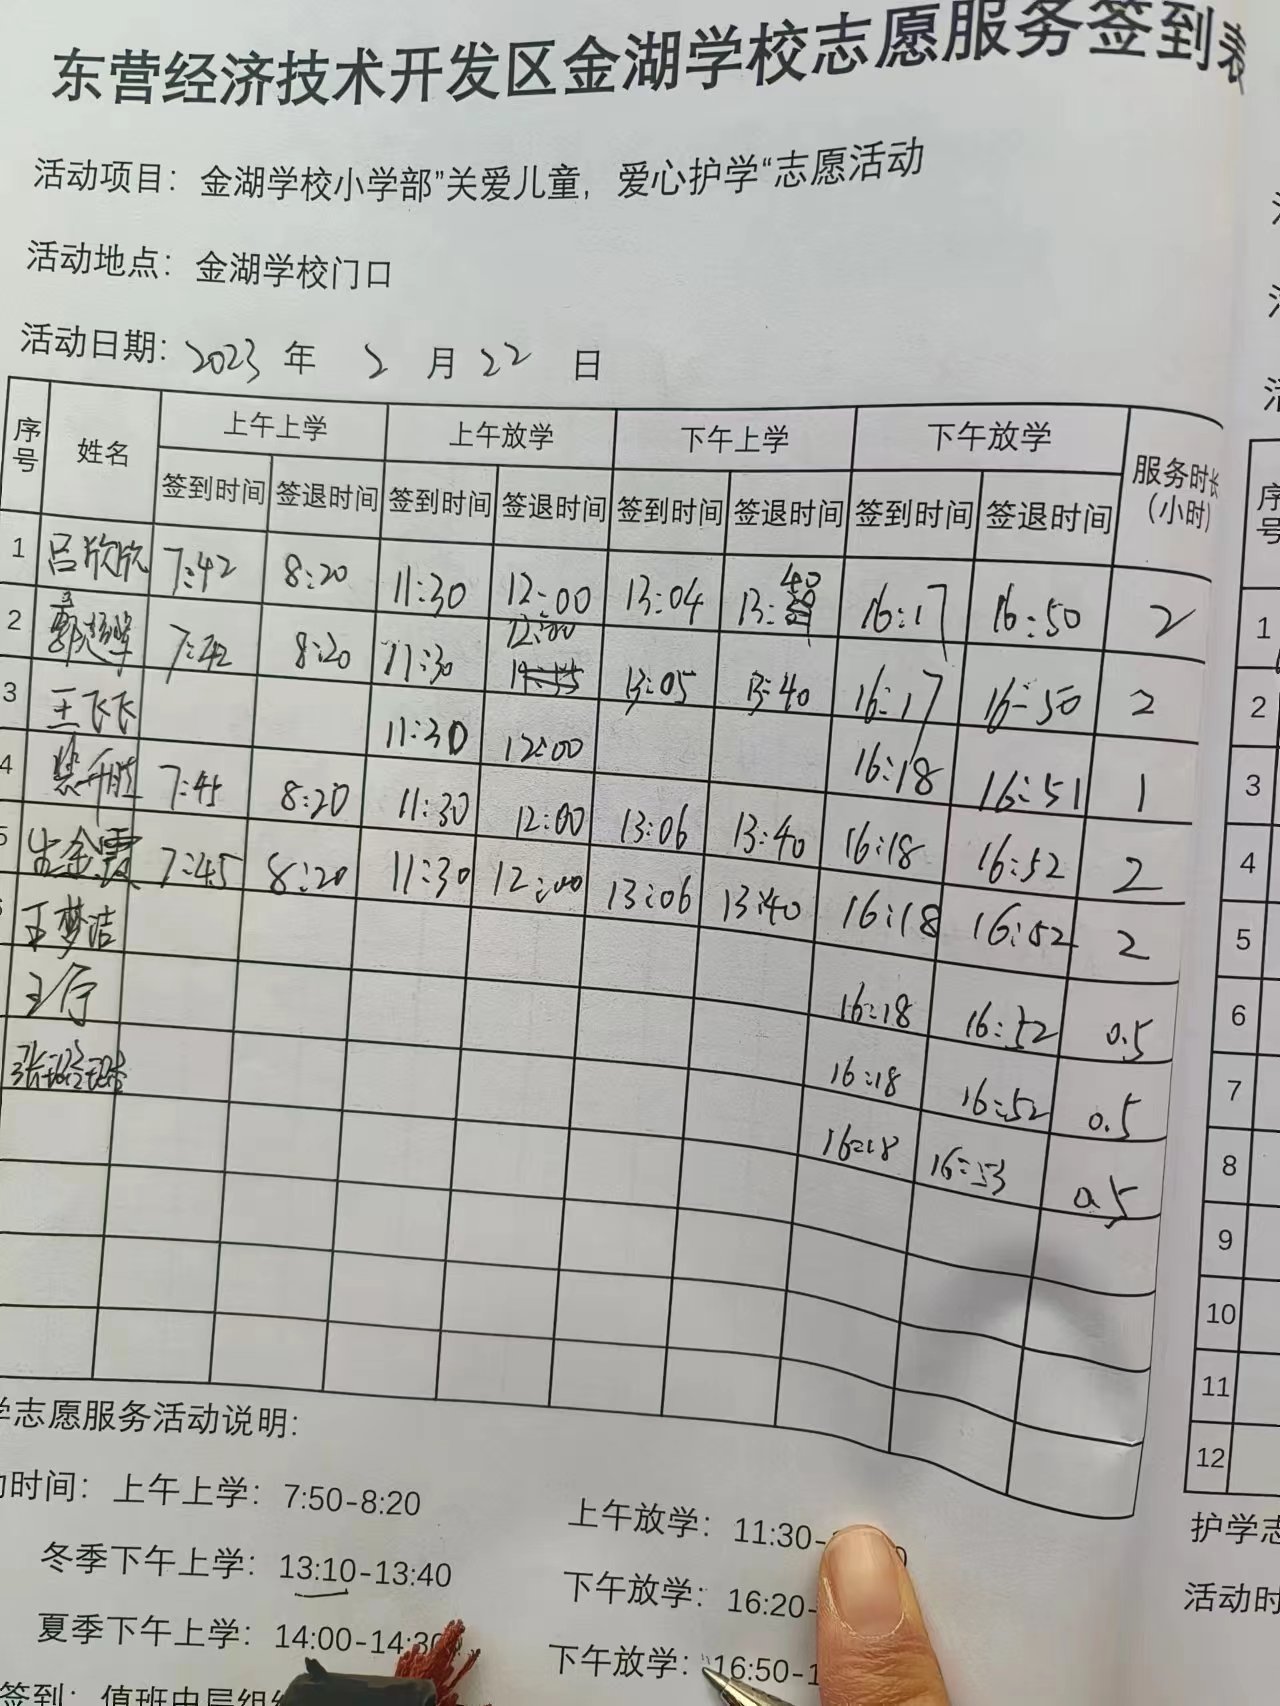 东营经济技术开发区金湖学校志愿服务签到表
活动项目：金湖学校小学部”关爱儿童，爱心护学“志愿活动
活动地点：金湖学校门口
活动日期：2023 年 2 月 22 日
序号 姓名 上午上学 上午放学 下午上学 下午放学 服务时长（小时）
签到时间 签退时间 签到时间 签退时间 签到时间 签退时间 签到时间 签退时间
1 吕欣欣 7:42 8:20 11:30 12:00 13:04 13:40 16:17 16:50 2
2 7:42 8:20 11:30 12:00 13:05 13:40 16:17 16:50 2
3 王飞飞 11:30 12:00 16:18 16:51 1
4 7:45 8:20 11:30 12:00 13:06 13:40 16:18 16:52 2
5 生金霞 7:45 8:20 11:30 12:00 13:06 13:40 16:18 16:52 2
王梦洁 16:18 16:52 0.5
16:18 16:52 0.5
16:18 16:53 0.5
学志愿服务活动说明：
动时间：上午上学：7:50-8:20 上午放学：11:30-
冬季下午上学：13:10-13:40 下午放学：16:20-
夏季下午上学：14:00-14:30 下午放学：16:50-1
签到：值班中层组织
序号
1
2
3
4
5
6
7
8
9
10
11
12
护学志
活动时